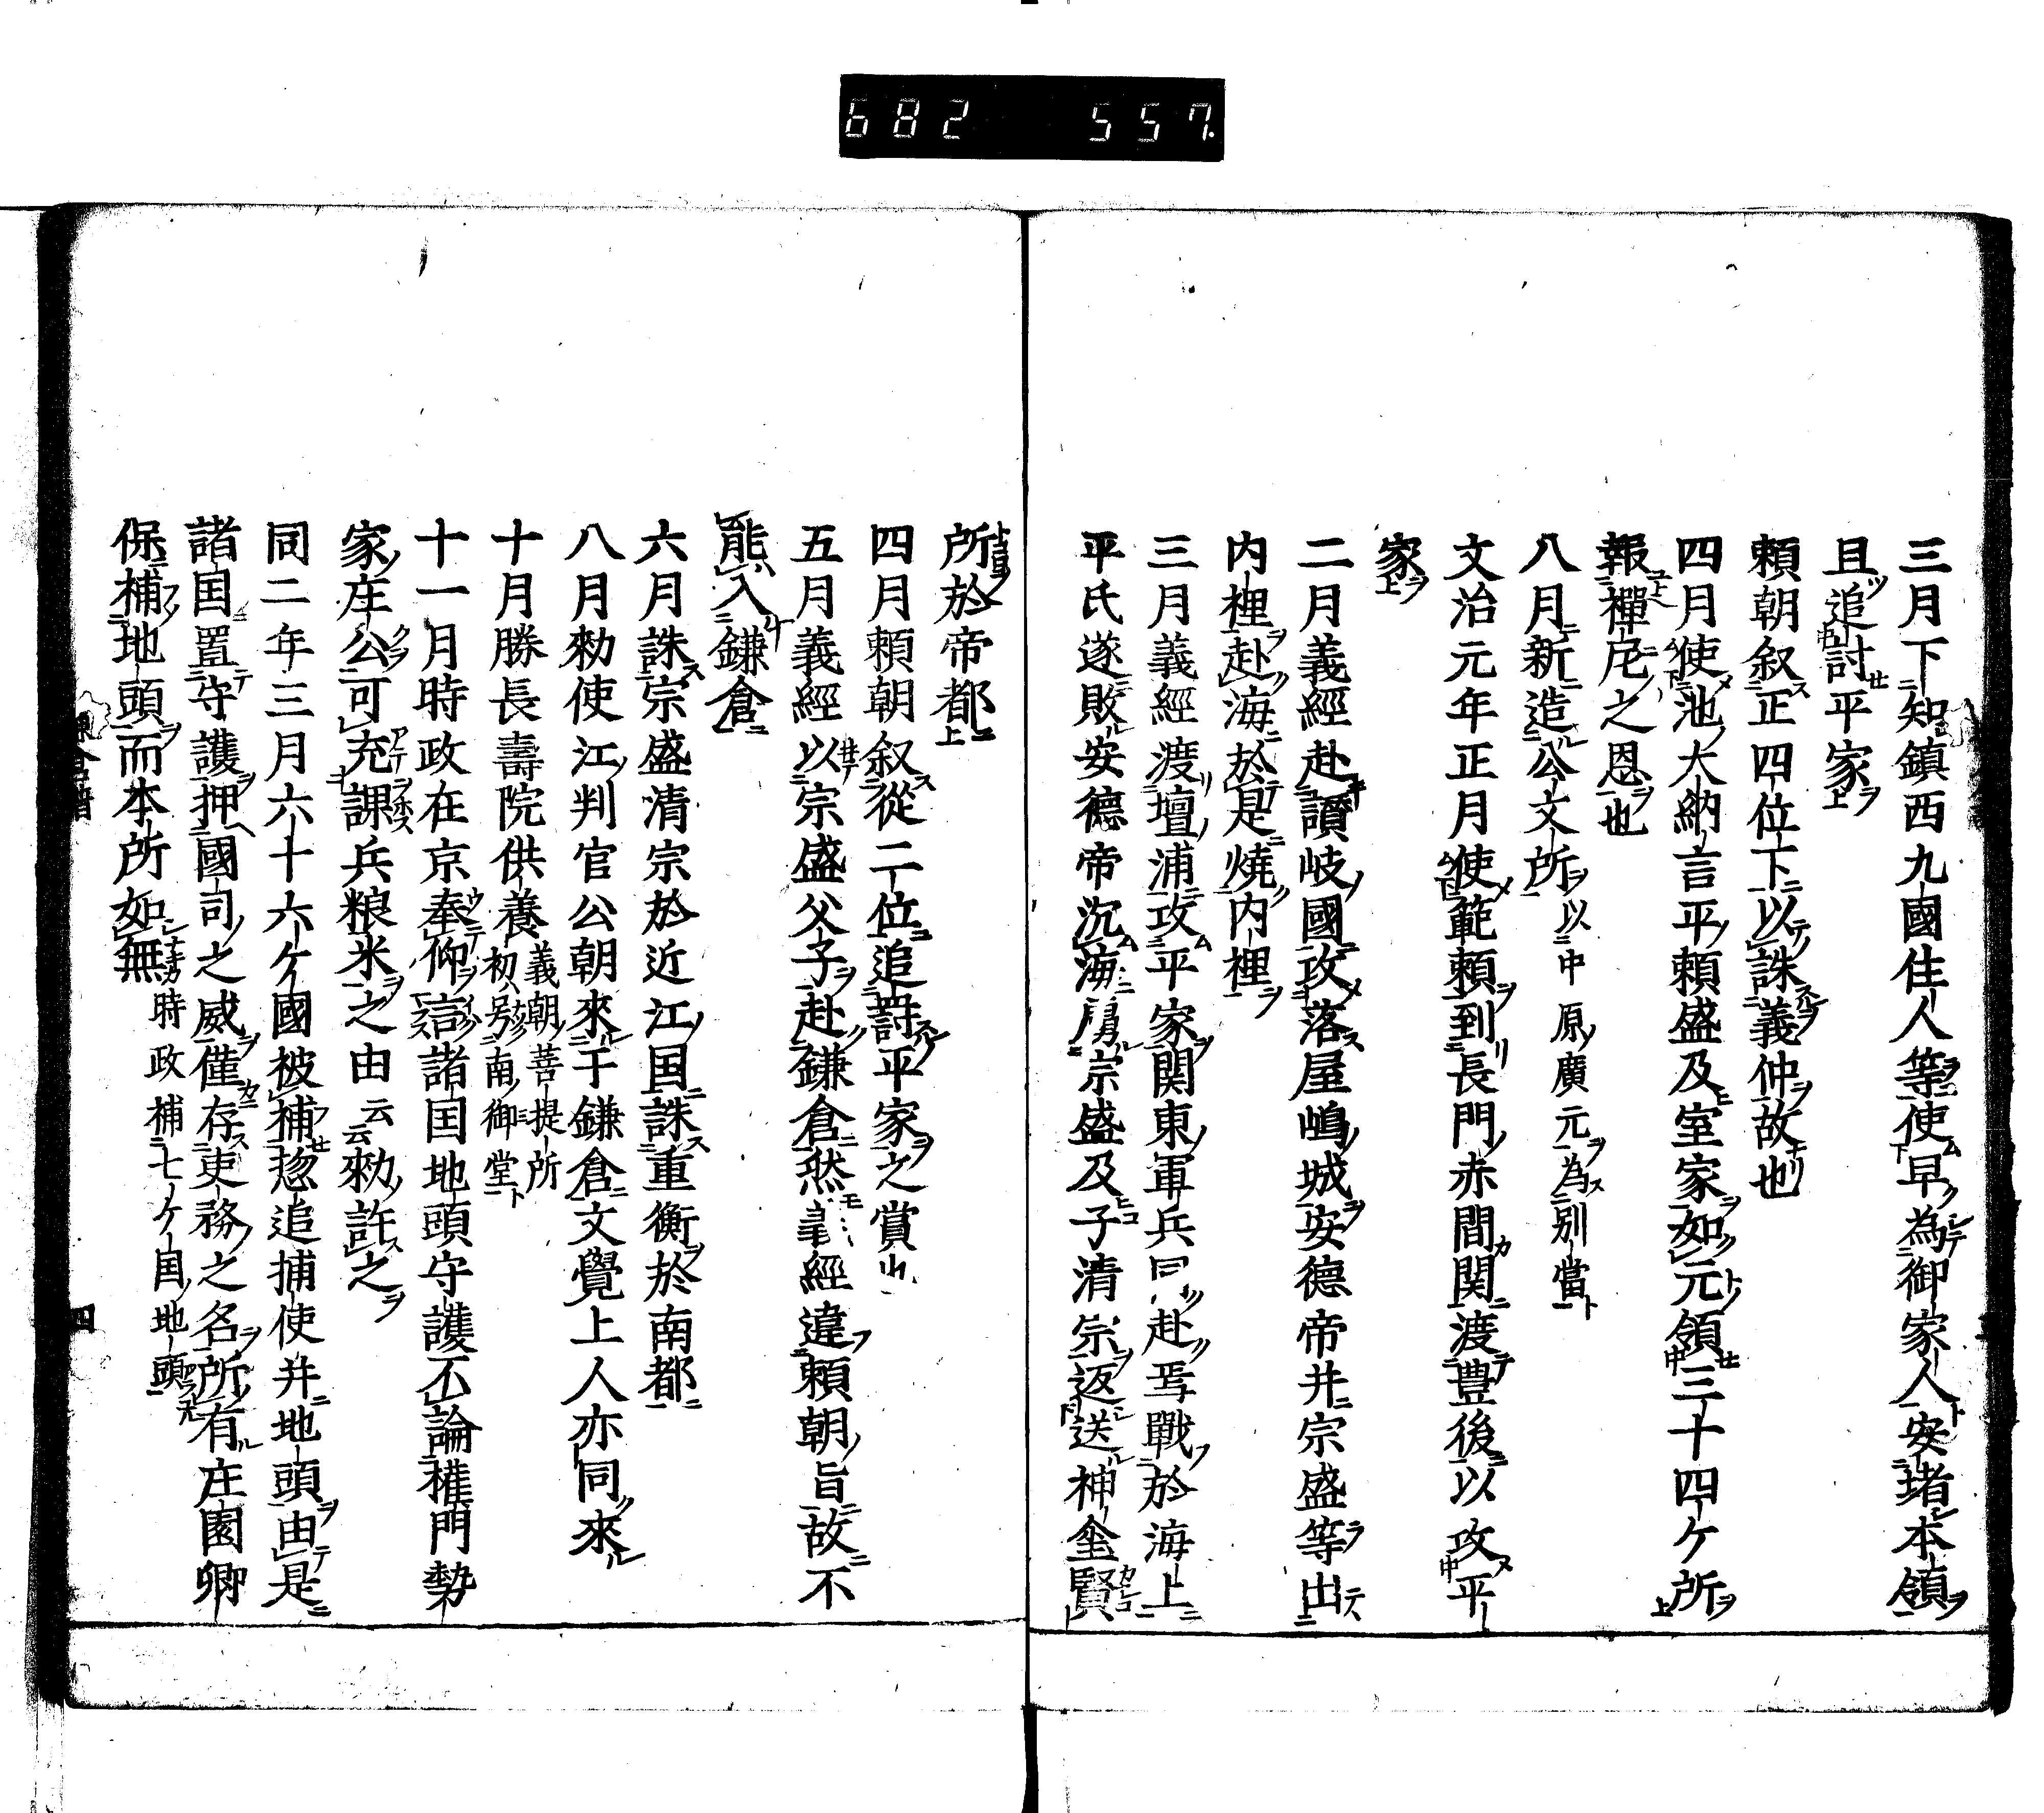 682 557.
三月下知鎮西九國住人等使早為御家人安堵本領
且追討平家
頼朝叙正四位下以誅義仲故也
四月使池大納言平頼盛及室家如元領三十四ケ所
報禪尼之恩也
八月新造公文所以中原廣元為別當
文治元年正月使範頼到長門赤間関渡豊後以攻平
家
二月義經赴讃岐國攻落屋嶋城安德帝并宗盛等出
内裡赴海於是燒内裡
三月義經渡壇浦攻平家関東軍兵同赴焉戰於海上
平氏遂敗安德帝沉海虜宗盛及子清宗返送神璽賢
所於帝都
四月頼朝叙從二位追討平家之賞也
五月義經以宗盛父子赴鎌倉然義經違頼朝旨故不
能入鎌倉
六月誅宗盛清宗於近江国誅重衡於南都
八月勅使江判官公朝來于鎌倉文覺上人亦同來
十月勝長壽院供養義朝菩提所初号南御堂
十一月時政在京奉仰言諸国地頭守護不論權門勢
家庄公可充課兵粮米之由云云勅許之
同二年三月六十六ケ國被補惣追捕使并地頭由是
諸国置守護押國司之威僅存吏務之名所有庄園郷
保補地頭而本所如無時政補七ケ国地頭
四